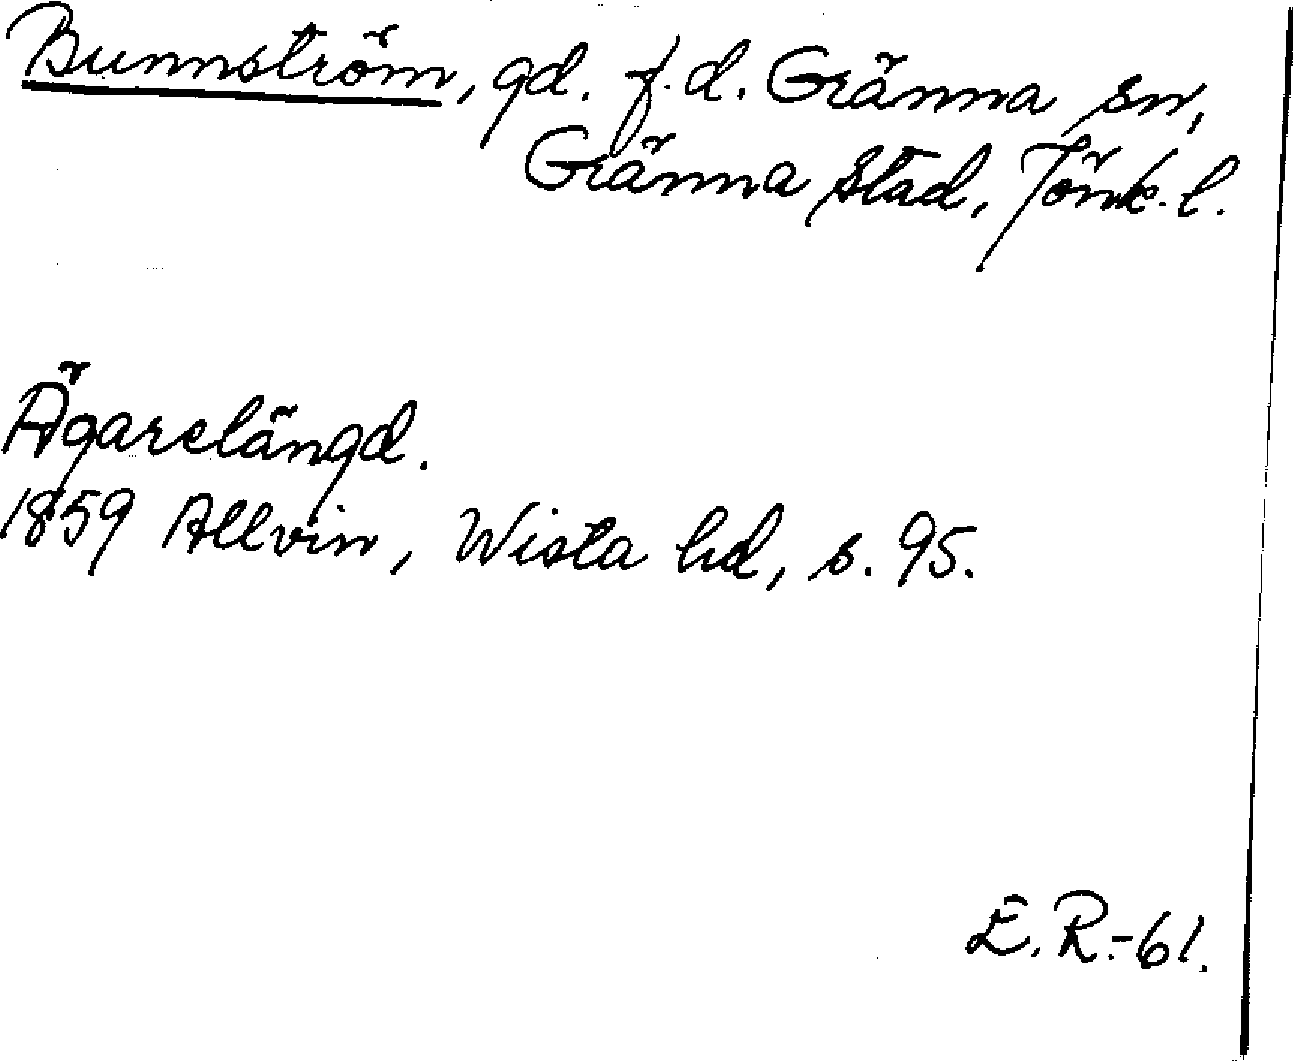 Bunnström, gd. f.d. Gränna sn,
Gränna stad, Jönk. l.
Ägarelängd.
1859 Allvin, Wista hd, s. 95.
E. R.-61.